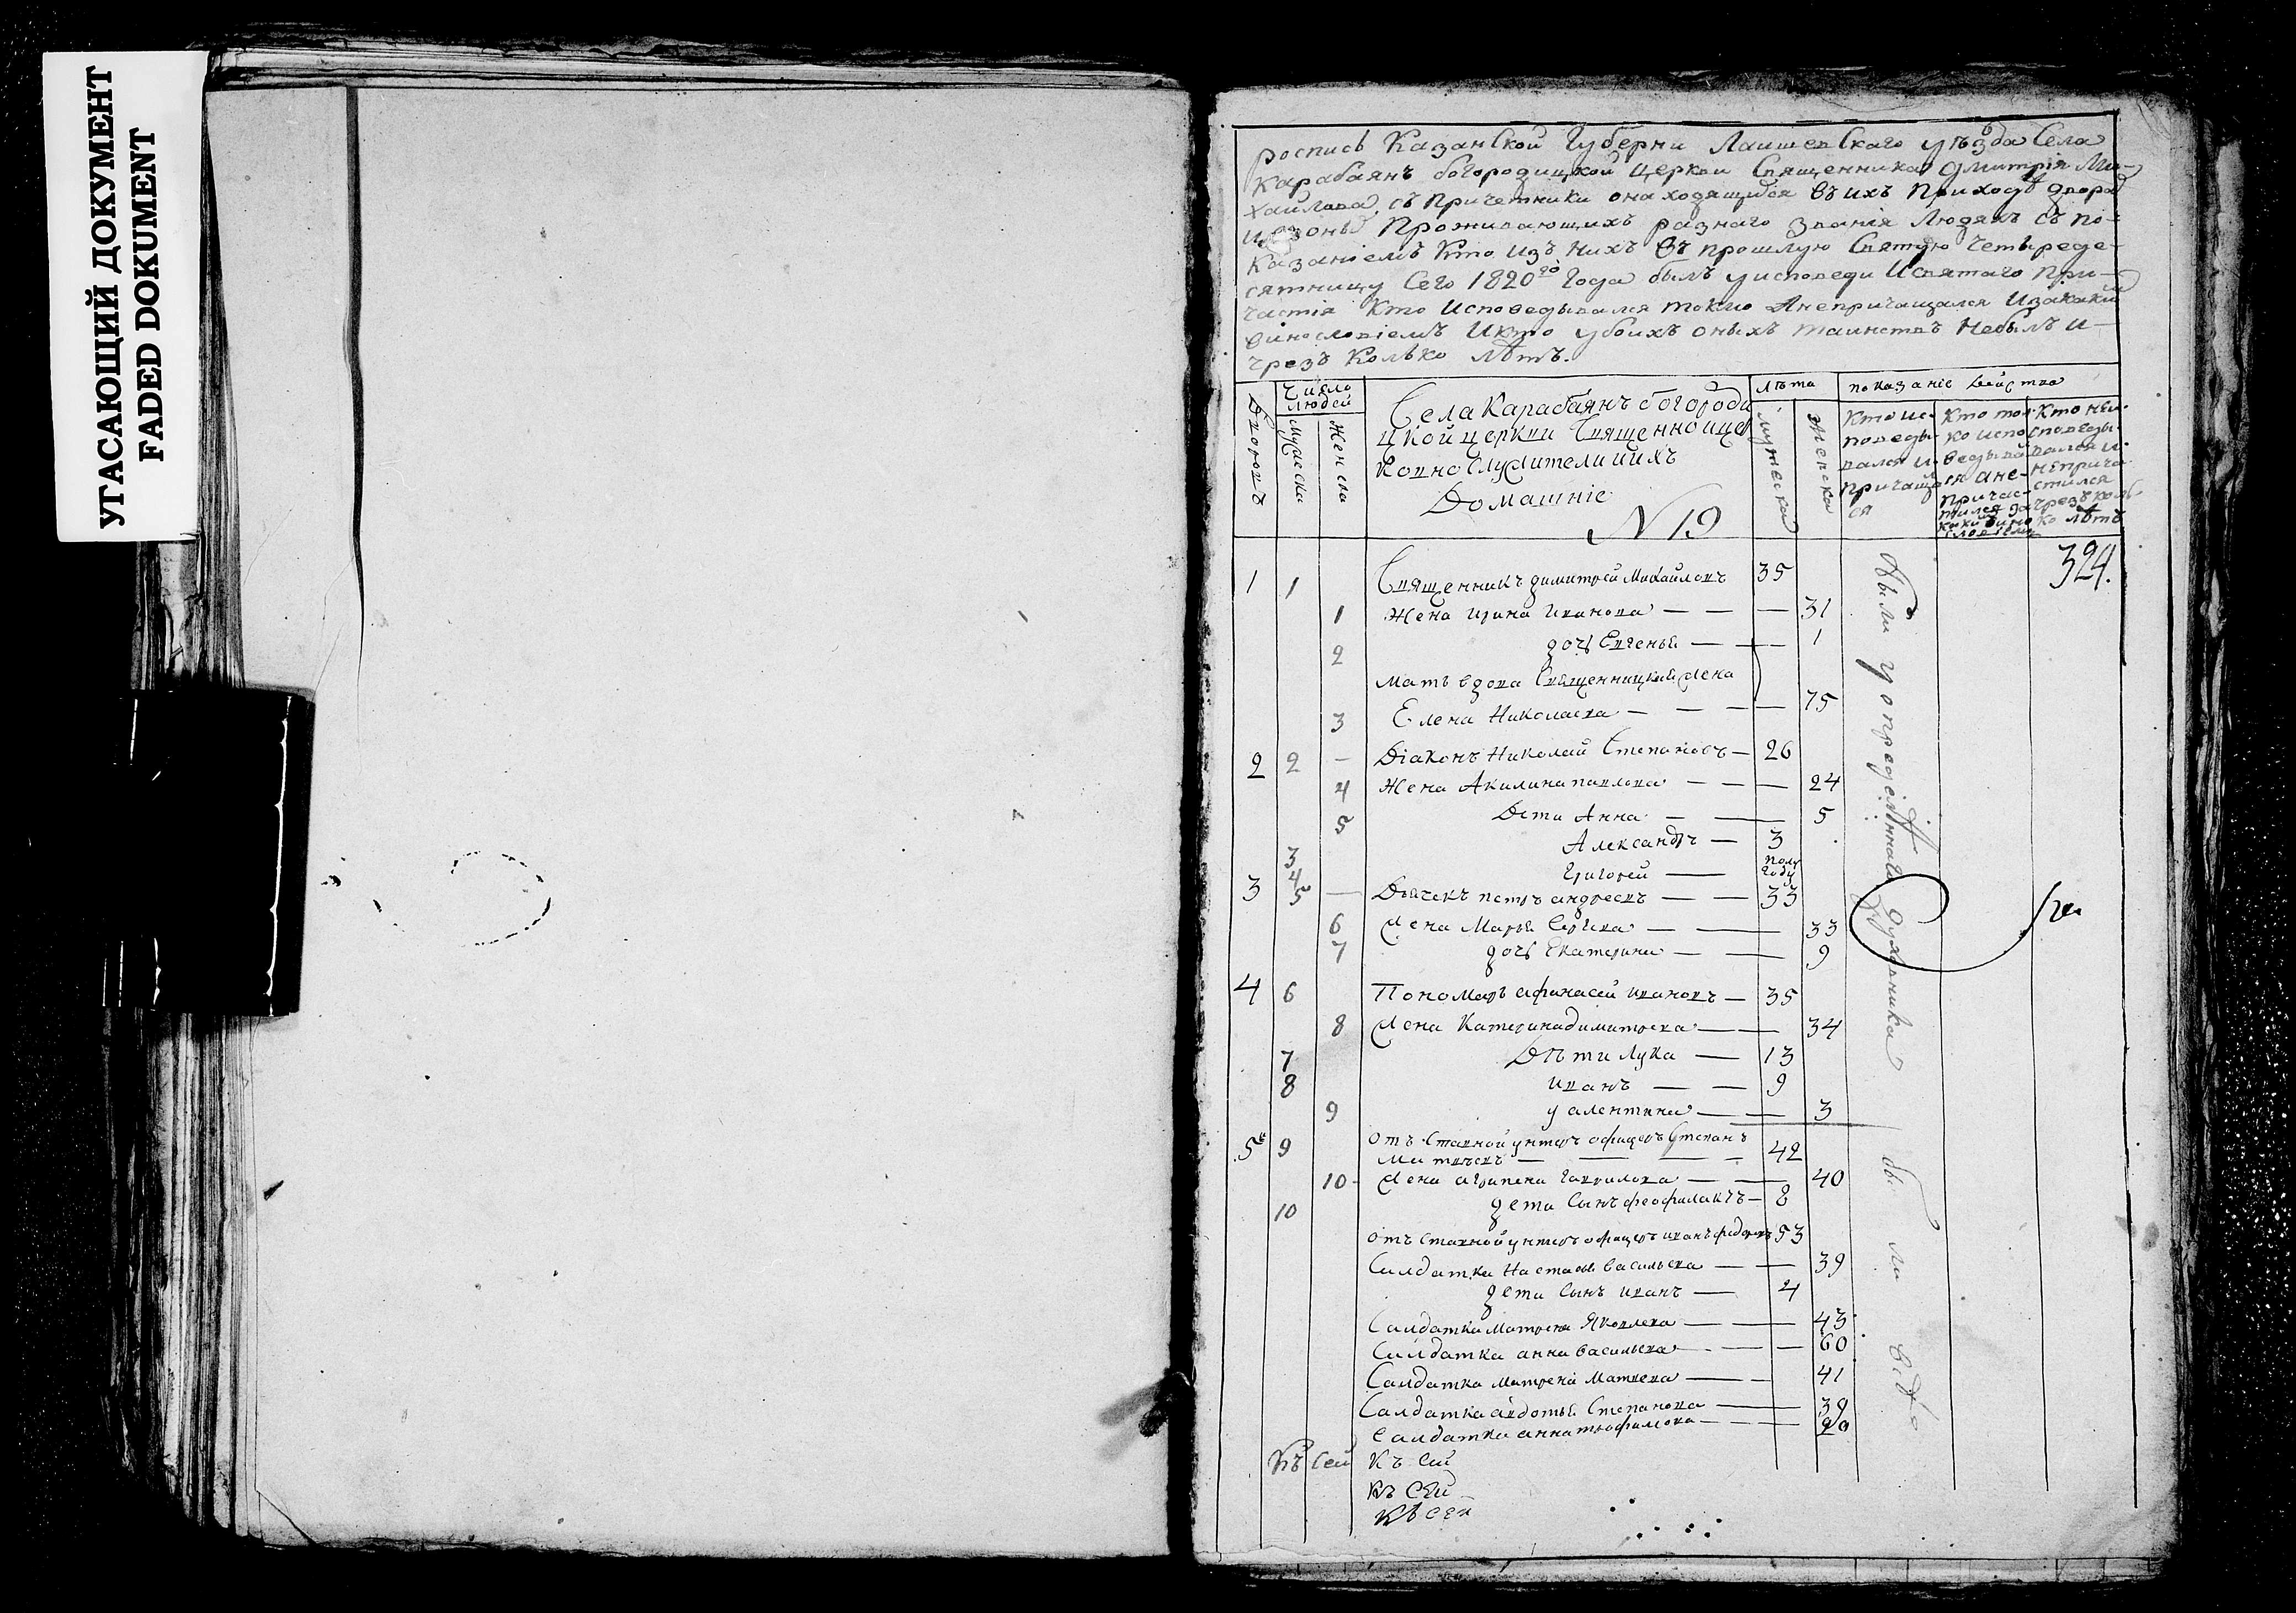 УГАСАЮЩИЙ ДОКУМЕНТ
FADED DOKUMENT
роспись Казанской Губерни Лаишевскаго уѣзда Села
Карабаянъ богородицкой Церкви Священника Дмитрія Ми-
хайлова съ Причетники о находящихся въ ихъ Приходѣ
Проживающихъ разнаго Званія Людяхъ съ по-
казаніемъ Кто изъ нихъ въ прошлую Святую Четыреде-
сятницу Сего 1820го Года былъ у исповеди И святаго При-
частія Кто Исповедывался токмо А непричащался И закаким
винословіемъ И кто убоихъ оныхъ таинствъ Небылъ и
чрезъ Колько лѣтъ.
Дворовъ
Число людей
Мужеска
Женска
Села Карабаянъ богороди
цкой церкви Священно и цер
ковно служители и ихъ
Домашніе
N 19
лѣта
мужеска
женска
показаніе действа
Кто ис-
поведы-
вался и
причащал
ся
Кто ток
мо испо
ведыва
лся а не
причас-
тился
Кто неис
поведы
вался и
неприча
стился
чрез коль
ко лѣтъ
324.
1 1 Священникъ димитрей Михайловъ 35
1 Жена ирина Иванова — — — 31
2 дочь Евгенья — — 1
Мать вдова Священницкая жена
3 Елена Николаева — — — 75
2 2 — Діаконъ Николай Степановъ — 26
4 Жена Акилина павлова — — — 24
5 Дети Анна — — 5
3 Александръ — 3
4 Григорей — полугоду
3 5 — Дьячекъ петръ андреевъ — — 33
6 жена Марья — — 33
7 дочь Екатерина — — 9
4 6 Пономарь афанасей ивановъ — 35
8 жена Катерина димитрева — — 34
7 Дѣти Лука — 13
8 иванъ — — 9
9 уалентина — — 3
5 9 отъ Ставной унтеръ офицеръ Степанъ
Матвеевъ — — — — 42
10 жена аграпена Гаврилова — — 40
10 дети Сынъ феофилактъ — 8
отъ Ставной унтеръ офицеръ иванъ федоровъ 53
Салдатка Настасья васильева — — 39
дети Сынъ иванъ — 4
Салдатка Матрена Яковлева — — 43
Салдатка анна васильева — — — 60
Салдатка матрена Матвева — — 41
Салдатка авдотья Степанова — 39
Салдатка анна трофимова — —
были у определеннаго духовника
были
Къ Сей Къ Сей
Къ Сей
Къ Сей